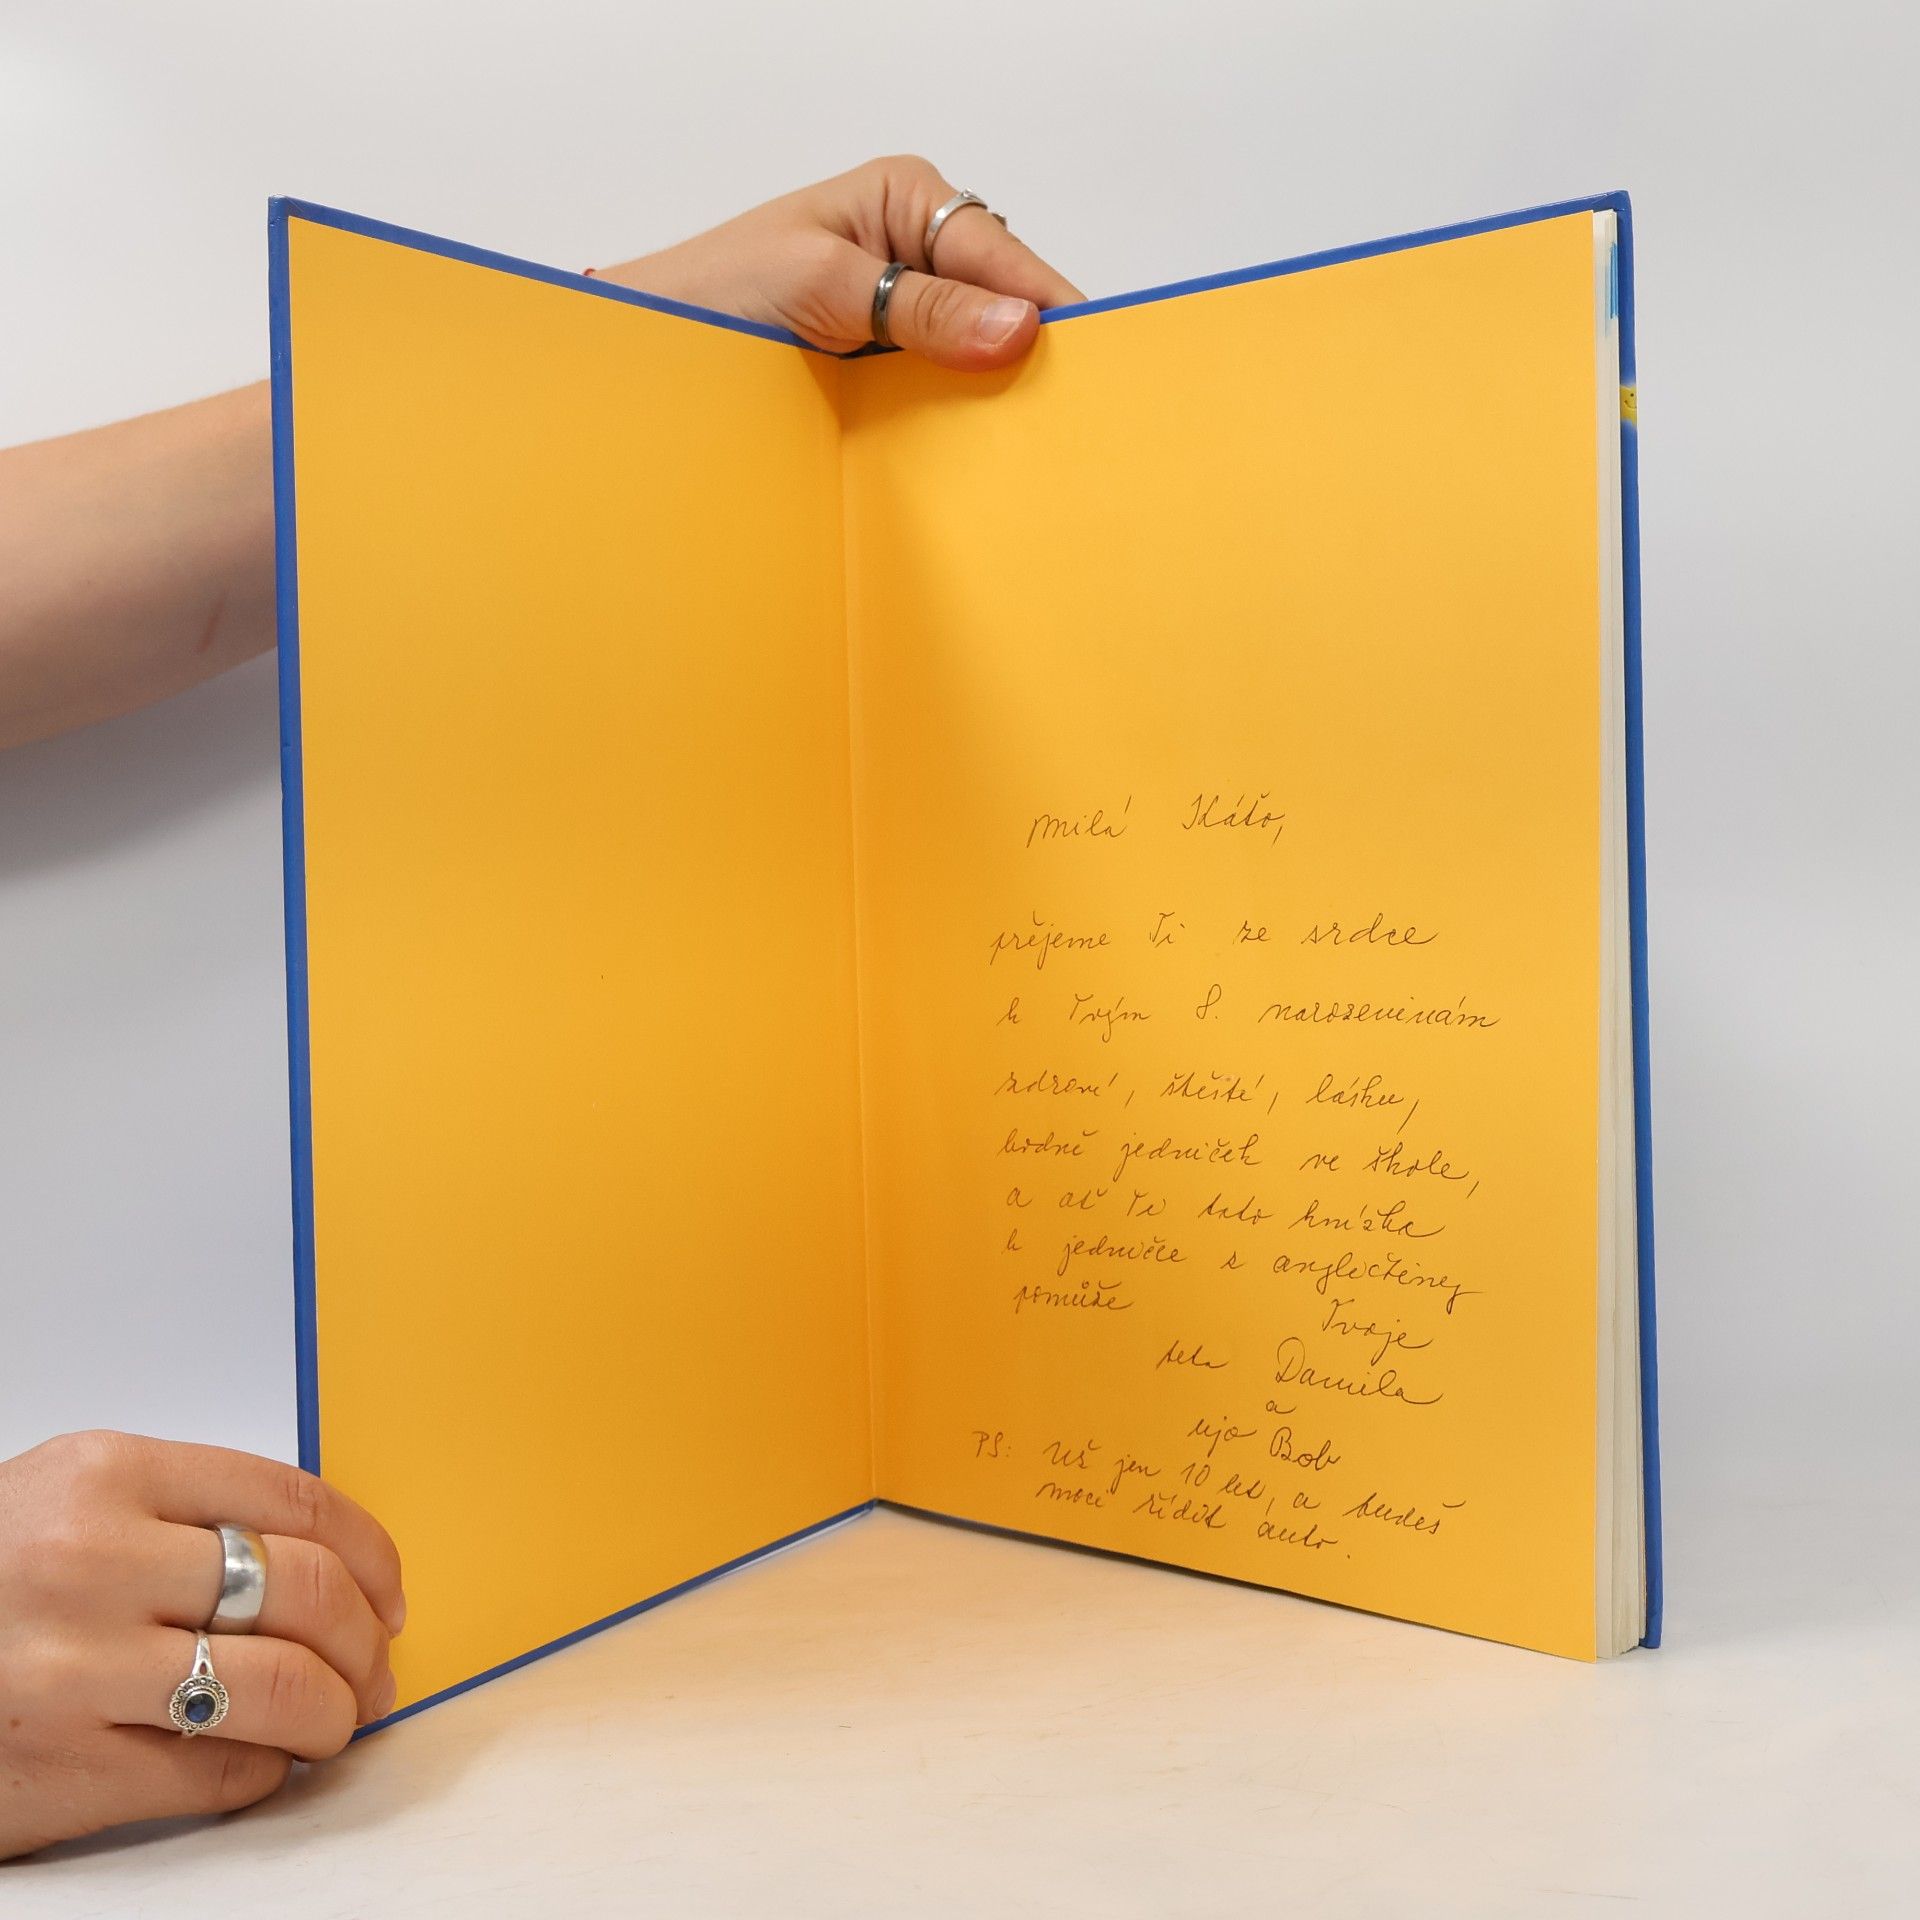 Milá Káťo,
přejeme Ti ze srdce
k Tvým 8. narozeninám
zdraví, štěstí, lásku,
hodně jedniček ve škole,
a ať Ti tato knížka
k jedničce z angličtiny
pomůže
Tvoje
teta Danila
a
ujo Bob
PS: Už jen 10 let, a budeš
moci řídit auto.